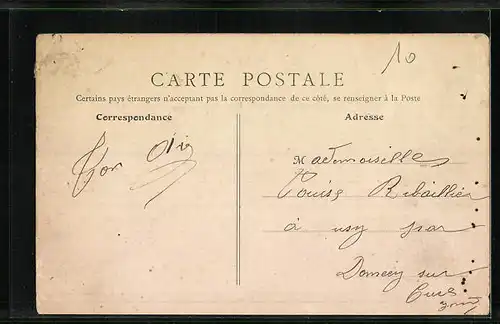 10
CARTE POSTALE
Certains pays étrangers n'acceptant pas la correspondance de ce côté, se renseigner à la Poste
Correspondance
Adresse
Mademoiselle
Louise Ribaillier
à usy par
Domecy sur
Cure